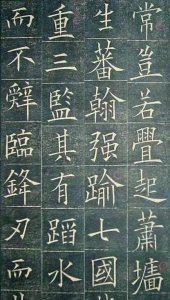 常豈若疊起蕭墻
生蕃翰强踰七國
重三監其有蹈水
而不辭臨鋒刃而